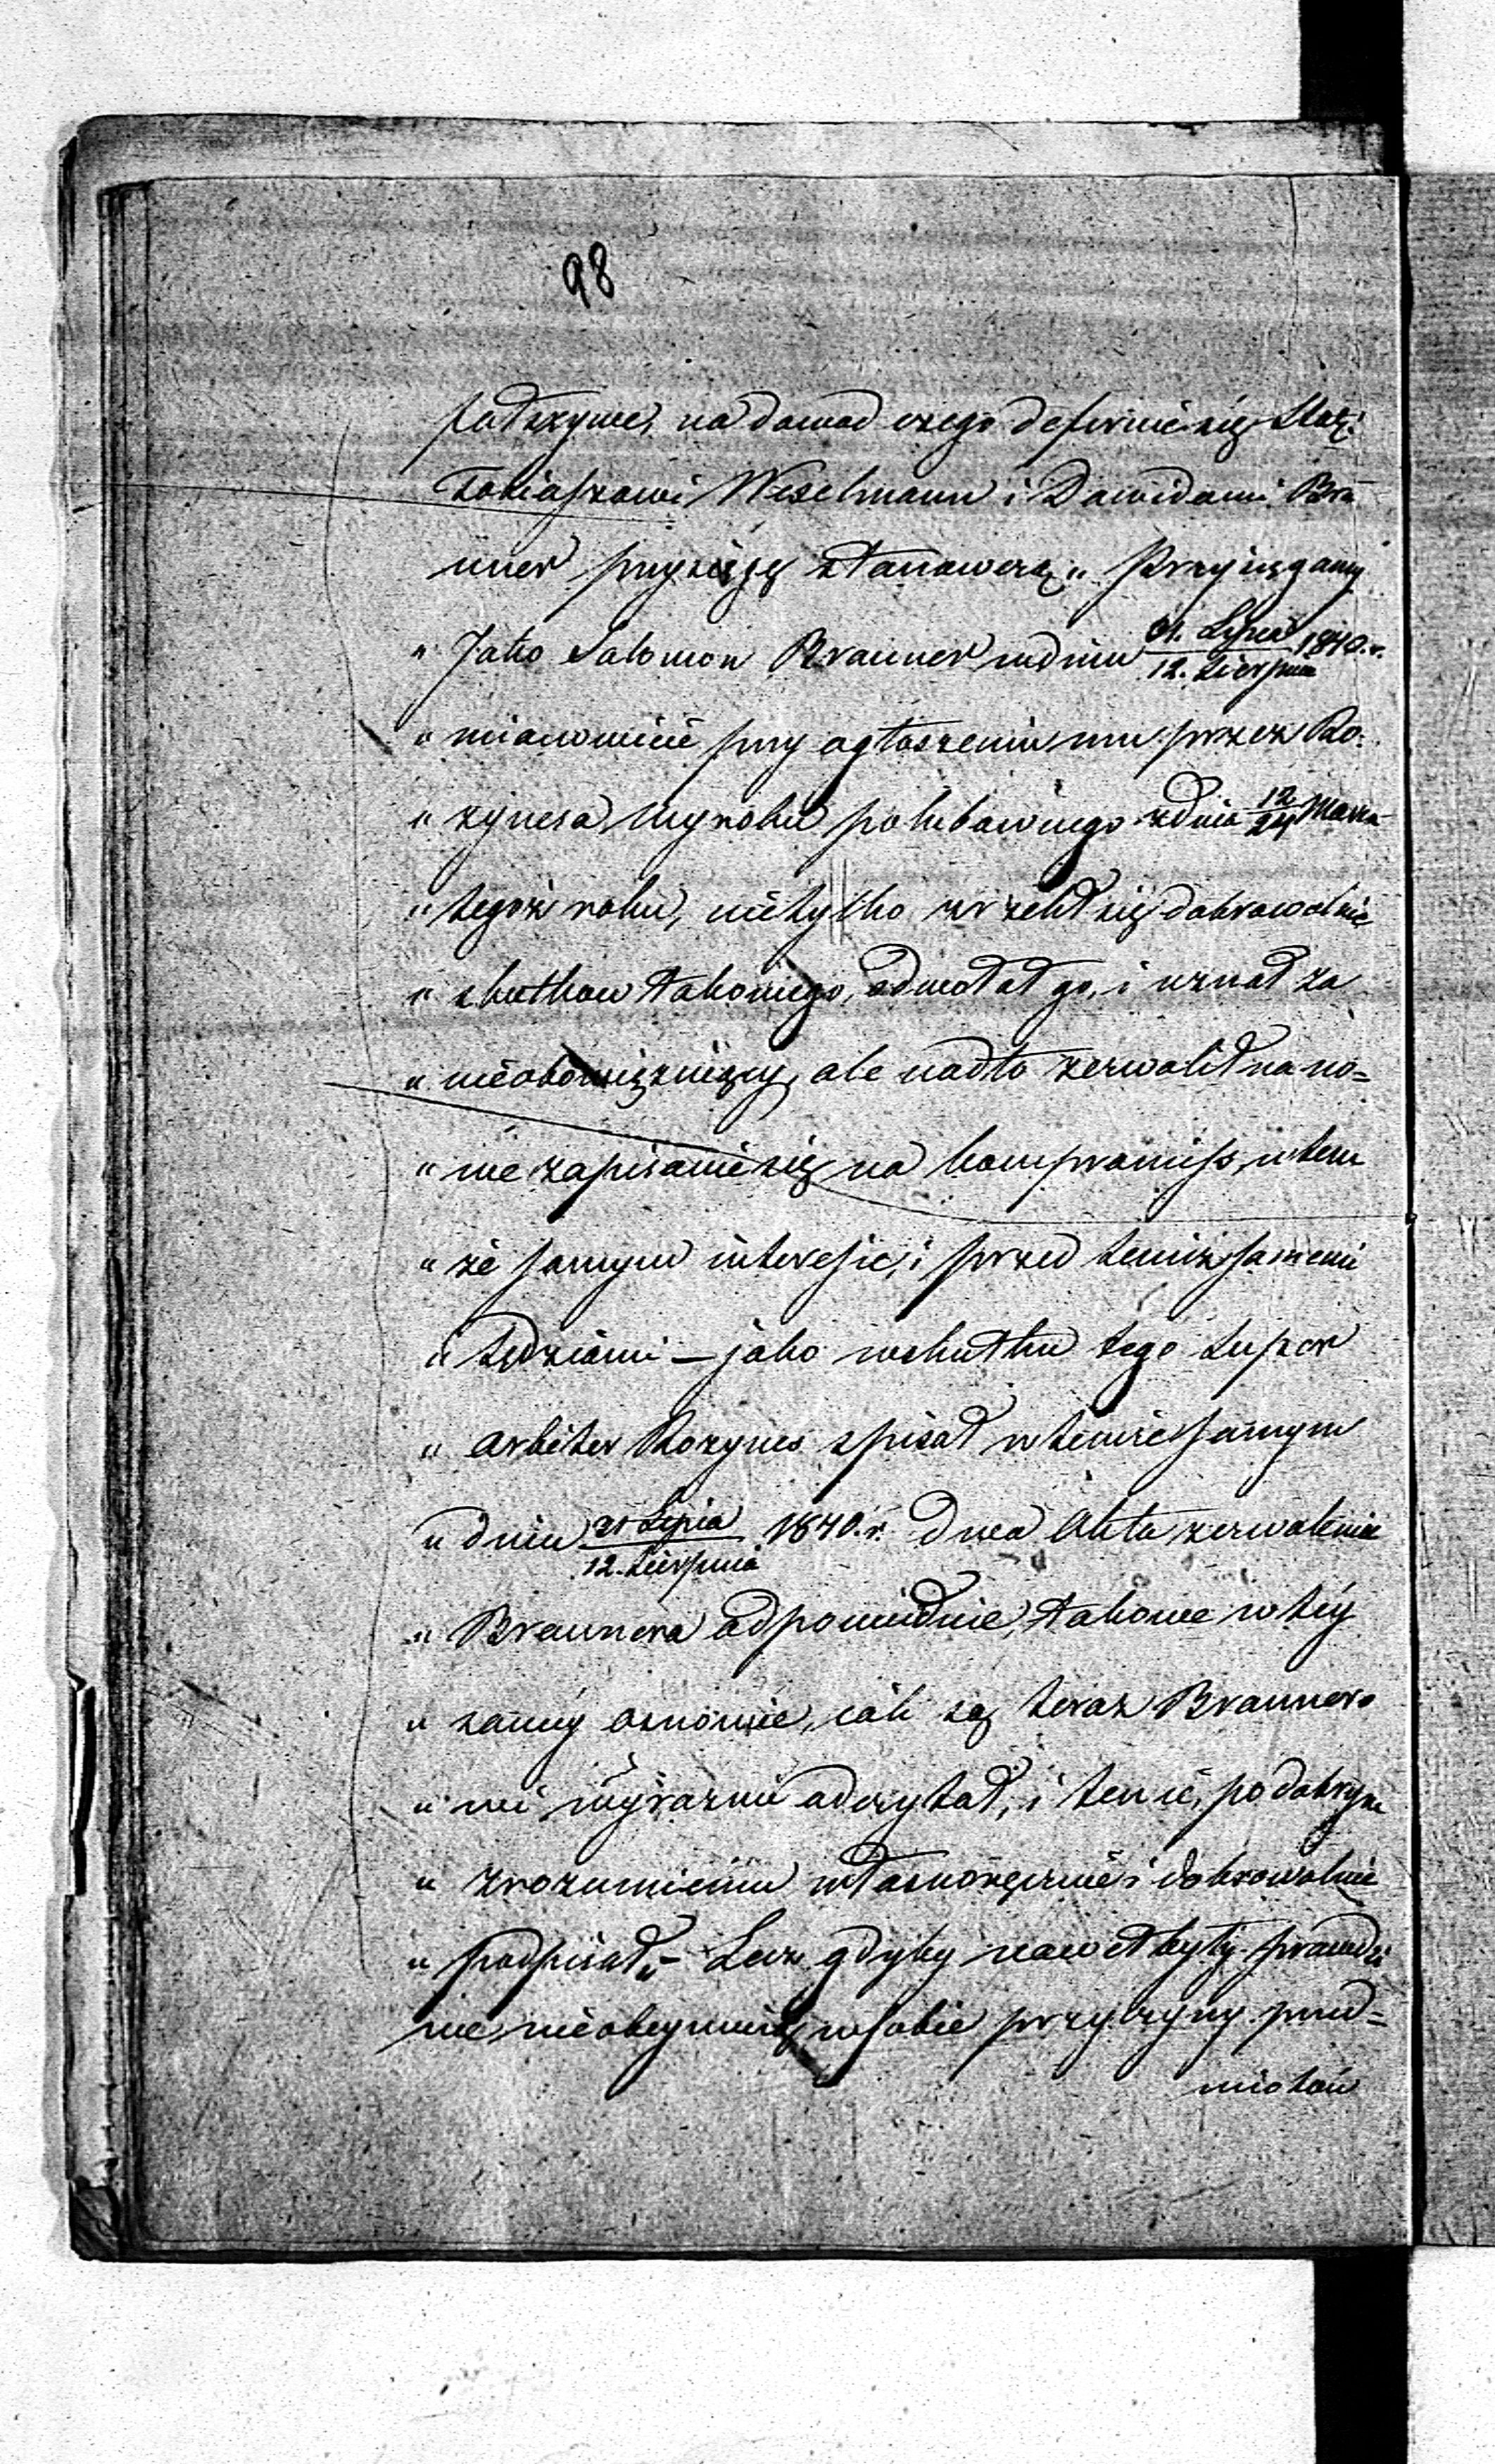 98
fałszywe, na dowód czego deferuie się Star:
Tobiaszowi Weselmann i Dawidowi Brü
nner przysięgę stanowczą „ Przysięgamy
„ Jako Salomon Brauner w dniu 31. Lipca / 12. Sierpnia 1840. r.
„ mianowicie przy ogłoszeniu mu przez Ro-
„ zynesa Wyroku polubownego z dnia 12/24 Marca
„ tegoż roku, nietylko zrzekł się dobrowolnie
„ skutków takowego, odwołał go, i uznał za
„ nieobowiązuiący, ale nadto zezwolił na no=
„ we zapisanie się na kompromiss, w tem
„ że samym interesie, i przed temiż samemi
„ Sędziami – jako w skutku tego Super
„ arbiter Rozynes spisał w temże samym
„ dniu 31 Lipca / 12. Sierpnia 1840. r. dwa Akta zezwolenia
„ Braunera odpowiednie, takowe w téy
„ saméy osnowie, iak są teraz Braunero
„ wi wyraźnie odczytał, i tenże, po dobrym
„ zrozumieniu własnoręcznie i dobrowolnie
„ podpisał „ – Lecz gdyby nawet były prawdzi
we, nieobeymuią w sobie przyczyny przed=
miotów